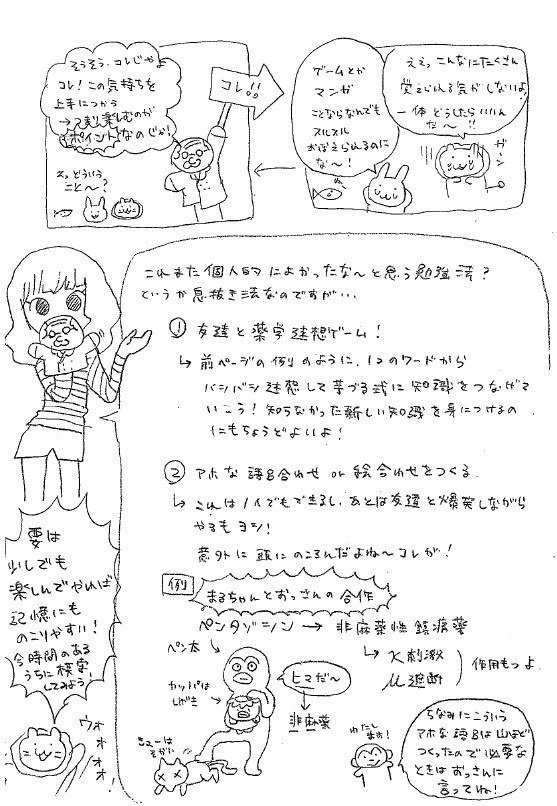 ええっこんなにたくさん
覚えられる気がしないよ!
一体どうしたらいいん
だ〜!!
ガーン
ゲームとか
マンガ
ことならなんでも
スルスル
おぼえられるのに
な〜!
コレ!!
そうそう、コレじゃよ
コレ!この気持ちを
上手につかう
楽しむのが
ポイントなのじゃ!
えっどういう
こと〜?
これまた個人的によかったな〜と思う勉強法?
というか息抜き法なのですが…
① 友達と薬学連想ゲーム!
↳ 前ページの例のように、1つのワードから
バンバン連想して芋づる式に知識をつなげて
いこう!知らなかった新しい知識を身につけるの
にもちょうどよいよ!
② アホな語呂合わせ or 絵合わせをつくる
↳ これは1人でもできるし、あとは友達と爆発しながら
やるもヨシ!
意外に頭にのこるんだよね〜コレが!
例 まるちゃんとおっさんの合作
ペンタゾシン → 非麻薬性鎮痛薬
↳ κ刺激
μ遮断
作用もつよ
ペン太
カッパは
しげき
ミューは
そがい
ヒマだ〜
↓
非麻薬
要は
少しでも
楽しんでやれば
記憶にも
のこりやすい!
今時間のある
うちに模索
してみよう!
ウォォォォ!
わたし
ます!
ちなみにこういう
アホな語呂は山ほど
つくったので必要な
ときはおっさんに
言ってね!